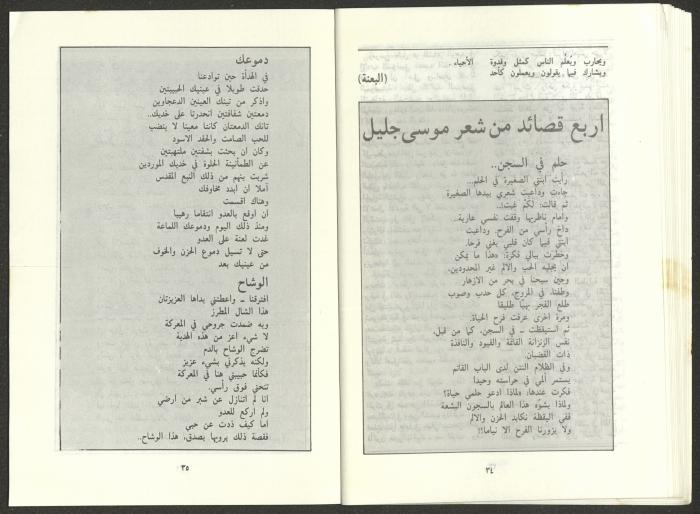 ويحارب ويُعلّم الناس كمثل وقدوة الأحياء .
ويشارك فيها يقولون ويعملون كأحد
(البعنة)
اربع قصائد من شعر موسى جليل
حلم في السجن..
رأيت ابنتي الصغيرة في الحلم..
جاءت وداعبت شعري بيدها الصغيرة
ثم قالت: لَكَمْ غبت!..
وامام ناظريها وقفت نفسي عارية..
داخ رأسي من الفرح. وداعبت
ابنتي فيها كان قلبي يغني فرحا.
وخطرت ببالي فكرة: «هذا ما يمكن
أن يجلبه الحب والألم غير المحدودين.
وحين سبحنا في بحر من الازهار
وطفنا، في المروج، كل حدب وصوب
طلع الفجر بهيا طليقا
ومرة اخرى عرفت فرح الحياة.
ثم استيقظت ــ في السجن، كما من قبل،
نفس الزنزانة القاتمة والقيود والنافذة
ذات القضبان.
وفي الظلام النتن لدى الباب القاتم
يستمر ألمي في حراسته وحيدا
فكرت عندها: ولماذا ادعو حلمي حياة؟
ولماذا يشوّه هذا العالم بالسجون البشعة
ففي اليقظة نكابد الحزن والالم
ولا يزورنا الفرح الا نياما!!
٣٤
دموعك
في الهدأة حين توادعنا
حدقت طويلا في عينيك الحبيبتين
واذكر من تينك العينين الدعجاوين
دمعتين شفافتين انحدرتا على خديك..
تانك الدمعتان كانتا معينا لا ينضب
للحب الصامت والحقد الاسود
وكان ان بحثت بشفتين ملتهبتين
عن الطمأنينة الحلوة في خديك الموردين
شربت بنهم من ذلك النبع المقدس
آملا ان ابدد مخاوفك
وهناك اقسمت
ان اوقع بالعدو انتقاما رهيبا
ومنذ ذلك اليوم ودموعك اللماعة
غدت لعنة على العدو
حتى لا تسيل دموع الحزن والخوف
من عينيك بعد
الوشاح
افترقنا ــ واعطتني يداها العزيزتان
هذا الشال المطرز
وبه ضمدت جروحي في المعركة
لا شيء اعز من هذه الهدية
تضرج الوشاح بالدم
ولكنه يذكرني بشيء عزيز
فكأنما حبيبتي هنا في المعركة
تنحني فوق رأسي.
انا لم اتنازل عن شبر من ارضي
ولم اركع للعدو
اما كيف ذدت عن حبي
فقصة ذلك يرويها بصدق، هذا الوشاح..
٣٥